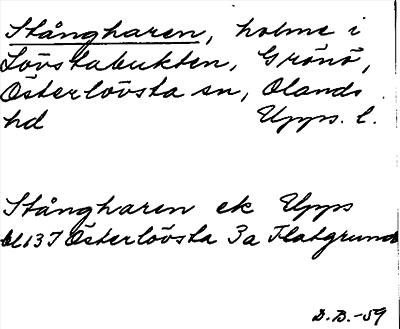 Stångharen, holme i
Lövstabukten, Grönö,
Österlövsta sn, Olands
hd Upps. l.
Stångharen ek Upps
bl 137 Österlövsta 3a Flatgrund
D.B.-59